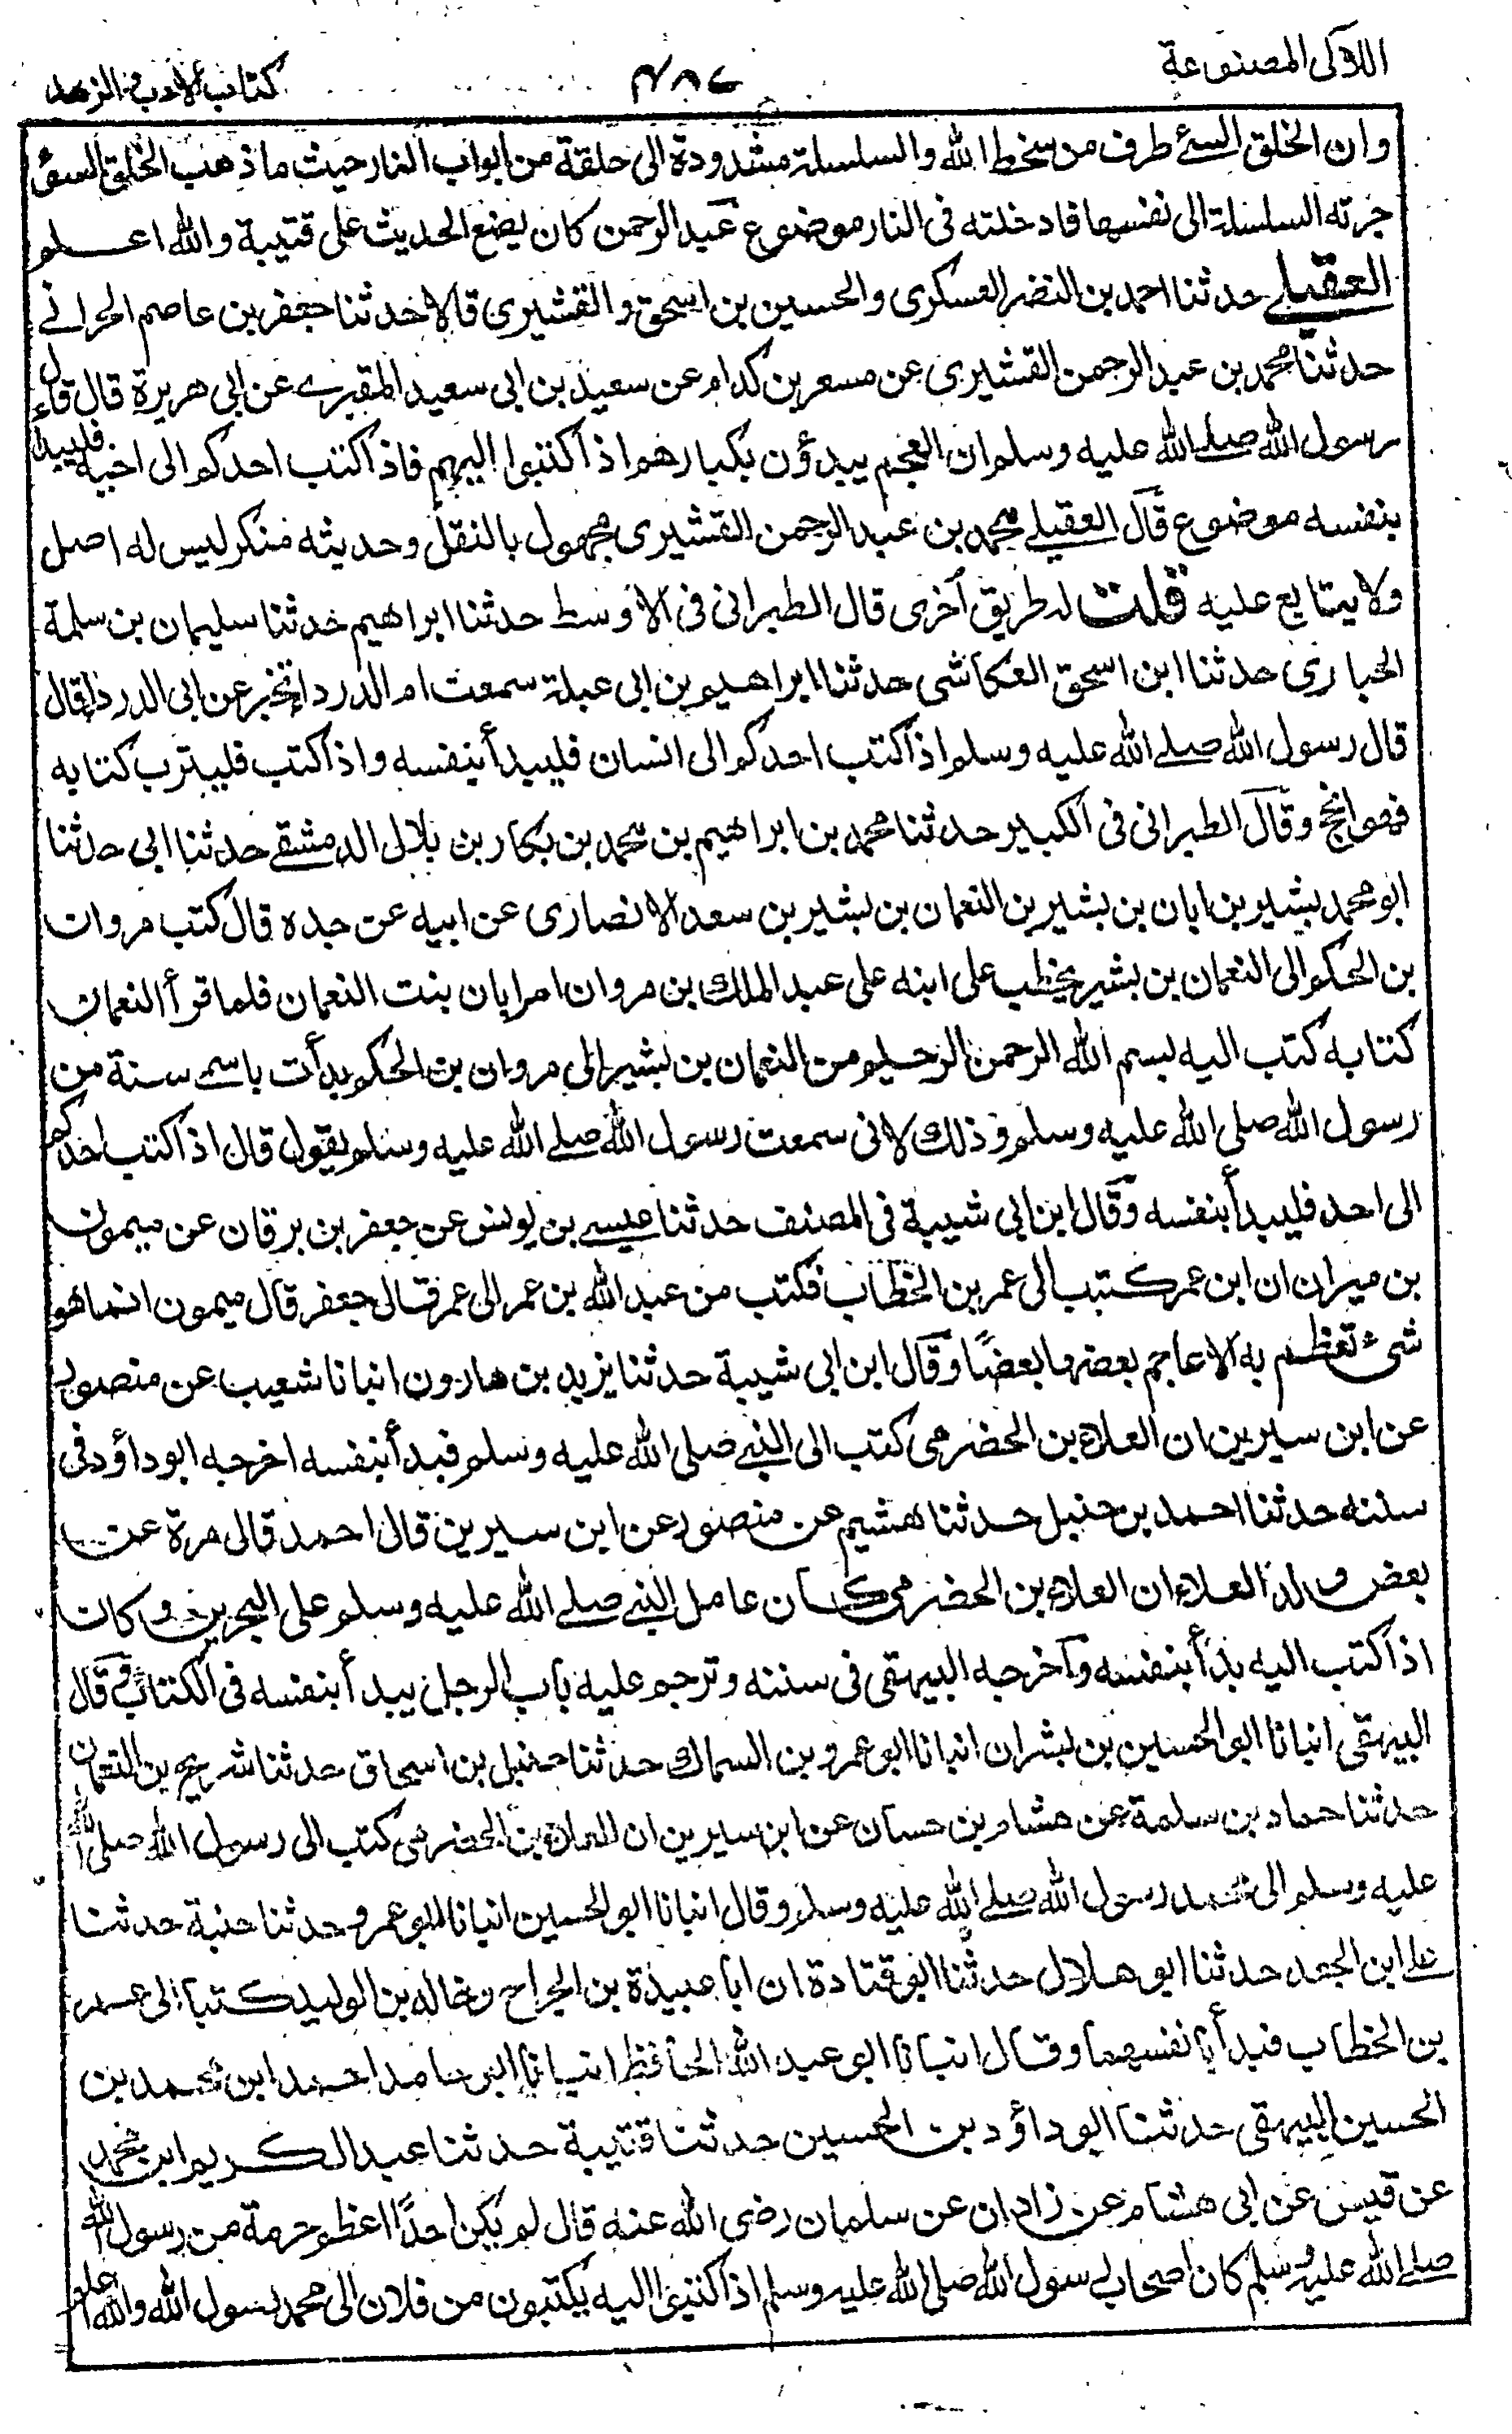 اللآلى المصنوعة
كتاب الادب والزهد
وان الخلق السئ طرف من سخط الله والسلسلة مشدودة الى حلقة من ابواب النار حيث ما ذهب الخلق السوء
جرته السلسلة الى نفسها فادخلته فى النار موضوع عبد الرحمن كان يضع الحديث على قتيبة والله اعلم
العقيلے حدثنا احمد بن النضر العسكرى والحسين بن اسحق والقشيرى قالا حدثنا جعفر بن عاصم الحرانے
حدثنا محمد بن عبد الرحمن القشيرى عن مسعر بن كدام عن سعيد بن ابى سعيد المقبرے عن ابى هريرة قال قال
رسول الله صلے الله عليه وسلم ان العجم يبدؤن بكبارهم اذا كتبوا اليهم فاذا كتب احدكم الى اخيه فليبدأ
بنفسه موضوع قال العقيلے محمد بن عبد الرحمن القشيرى مجهول بالنقل وحديثه منكر ليس له اصل
ولا يتابع عليه قلت له طريق آخرى قال الطبرانى فى الاوسط حدثنا ابراهيم حدثنا سليمان بن سلمة
الخبارى حدثنا ابن اسحق العكاشى حدثنا ابراهيم بن ابى عبلة سمعت ام الدرداء تخبر عن ابى الدرداء قال
قال رسول الله صلے الله عليه وسلم اذا كتب احدكم الى انسان فليبدأ بنفسه واذا كتب فليترب كتابه
فهو انجح وقال الطبرانى فى الكبير حدثنا محمد بن ابراهيم بن محمد بن بكار بن بلال الدمشقے حدثنا ابى حدثنا
ابو محمد بشير بن ابان بن بشير بن النعمان بن بشير بن سعد الانصارى عن ابيه عن جده قال كتب مروان
بن الحكم الى النعمان بن بشير يخطب على ابنه على عبد الملك بن مروان ام ابان بنت النعمان فلما قرأ النعمان
كتابه كتب اليه بسم الله الرحمن الرحيم من النعمان بن بشير الى مروان بن الحكم بدأت باسمے سنة من
رسول الله صلى الله عليه وسلم وذلك لانى سمعت رسول الله صلے الله عليه وسلم يقول قال اذا كتب احدكم
الى احد فليبدأ بنفسه وقال ابن ابى شيبة فى المصنف حدثنا عيسے بن يونس عن جعفر بن برقان عن ميمون
بن مهران ان ابن عمر كتب الى عمر بن الخطاب فكتب من عبد الله بن عمر الى عمر قال جعفر قال ميمون انما هو
شىء تعظم به الاعاجم بعضها بعضًا وقال ابن ابى شيبة حدثنا يزيد بن هارون انبانا شعيب عن منصور
عن ابن سيرين ان العلاء بن الحضرمى كتب الى النبے صلى الله عليه وسلم فبدأ بنفسه اخرجه ابو داؤد فى
سننه حدثنا احمد بن حنبل حدثنا هشيم عن منصور عن ابن سيرين قال احمد قال مرة عن
بعض ولد العلاء ان العلاء بن الحضرمى كان عامل النبے صلے الله عليه وسلم على البحرين وكان
اذا كتب اليه بدأ بنفسه وآخرجه البيهقى فى سننه وترجم عليه باب الرجل يبدأ بنفسه فى الكتاب وقال
البيهقى انبانا ابو الحسين بن بشران انبانا ابو عمرو بن السماك حدثنا حنبل بن اسحاق حدثنا شريح بن النعمان
حدثنا حماد بن سلمة عن هشام بن حسان عن ابن سيرين ان العلاء بن الحضرمى كتب الى رسول الله صلى الله
عليه وسلم الى محمد رسول الله صلے الله عليه وسلم وقال انبانا ابو الحسين انبانا ابو عمرو حدثنا حنبة حدثنا
علے ابن الجعد حدثنا ابو هلال حدثنا ابو قتادة ان ابا عبيدة بن الجراح وخالد بن الوليد كتبا الى عمر
بن الخطاب فبدأ بانفسهما وقال انبانا ابو عبد الله الحافظ انبانا ابو حامد احمد ابن محمد بن
الحسين البيهقى حدثنا ابو داؤد بن الحسين حدثنا قتيبة حدثنا عبد الكريم ابن محمد
عن قيس عن ابى هشام عن زادان عن سلمان رضى الله عنه قال لم يكن احدًا اعظم حرمة من رسول الله
صلے الله عليه وسلم كان اصحاب رسول الله صلى الله عليه وسلم اذا كتبوا اليه يكتبون من فلان الى محمد رسول الله والله اعلم